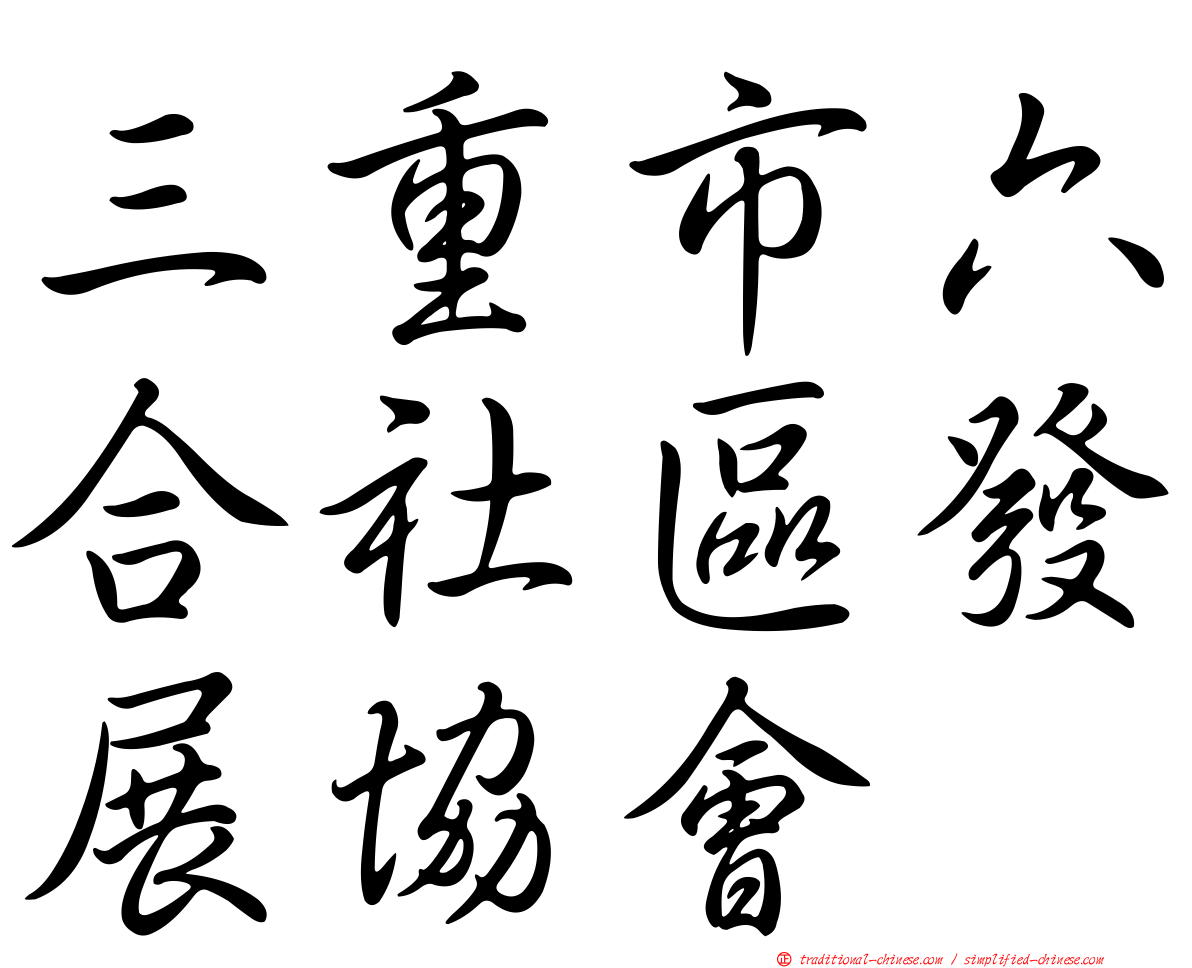 三重市六
合社區發
展協會
正 traditional-chinese.com / simplified-chinese.com